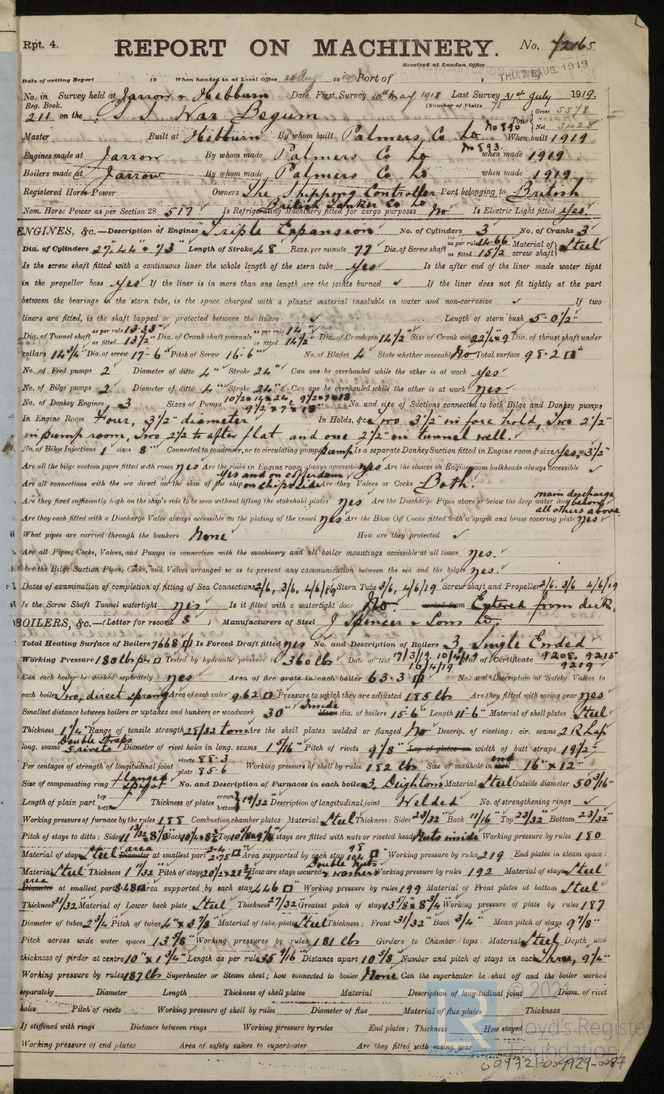 Rpt. 4. REPORT ON MACHINERY. No. 72165
Received at London Office
Date of writing Report 19 When handed in at Local Office 19 Port of THU. AUG. 1919
No. in Survey held at Jarrow & Hebburn Date, First Survey 10th May 1918 Last Survey 31st July 1919
Reg. Book. (Number of Visits 78
211 on the S.S. "War Begum" Tons Gross 5578 Net 3428
Master Built at Hebburn By whom built Palmers Co Ld No 890 When built 1919
Engines made at Jarrow By whom made Palmers Co Ld No 893 when made 1919
Boilers made at Jarrow By whom made Palmers Co Ld when made 1919
Registered Horse Power Owners The Shipping Controller Port belonging to British
British Tanker Co Ld
Nom. Horse Power as per Section 28 517 Is Refrigerating Machinery fitted for cargo purposes No Is Electric Light fitted yes
ENGINES, &c.—Description of Engines Triple Expansion No. of Cylinders 3 No. of Cranks 3
Dia. of Cylinders 27"-44"-73" Length of Stroke 48 Revs. per minute 77 Dia. of Screw shaft as per rule 14.66 as fitted 15 1/2 Material of screw shaft Steel
Is the screw shaft fitted with a continuous liner the whole length of the stern tube yes Is the after end of the liner made water tight
in the propeller boss yes If the liner is in more than one length are the joints burned ✓ If the liner does not fit tightly at the part
between the bearings in the stern tube, is the space charged with a plastic material insoluble in water and non-corrosive ✓ If two
liners are fitted, is the shaft lapped or protected between the liners ✓ Length of stern bush 5-0 1/2"
Dia. of Tunnel shaft as per rule 13.33" as fitted 13 1/2" Dia. of Crank shaft journals as per rule 14" as fitted 14 1/2" Dia. of Crank pin 14 1/2 Size of Crank webs 22 1/4 x 9 Dia. of thrust shaft under
collars 14 1/4" Dia. of screw 17-6" Pitch of Screw 16-6" No. of Blades 4 State whether moveable No Total surface 98.2
No. of Feed pumps 2 Diameter of ditto 4" Stroke 24" Can one be overhauled while the other is at work yes
No. of Bilge pumps 2 Diameter of ditto 4" Stroke 24" Can one be overhauled while the other is at work yes
No. of Donkey Engines 3 Sizes of Pumps No. and size of Suctions connected to both Bilge and Donkey pumps
In Engine Room Four, 3 1/2" diameter In Holds, &c. Two 3 1/2" in fore hold, Two 2 1/2"
in pump room, Two 2 1/2 to after flat and one 2 1/2" in tunnel well.
No. of Bilge Injections 1 sizes 8" Connected to condenser, or to circulating pump pump Is a separate Donkey Suction fitted in Engine room & size yes = 3 1/2"
Are all the bilge suction pipes fitted with roses yes Are the roses in Engine room always accessible yes Are the sluices on Engine room bulkheads always accessible ✓
Are all connections with the sea direct on the skin of the ship on ships side Are they Valves or Cocks Both.
Are they fixed sufficiently high on the ship's side to be seen without lifting the stokehold plates yes Are the Discharge Pipes above or below the deep water line main discharge below all others above
Are they each fitted with a Discharge Valve always accessible on the plating of the vessel yes Are the Blow Off Cocks fitted with a spigot and brass covering plate yes
What pipes are carried through the bunkers None How are they protected ✓
Are all Pipes, Cocks, Valves, and Pumps in connection with the machinery and all boiler mountings accessible at all times yes.
Are the Bilge Suction Pipes, Cocks, and Valves arranged so as to prevent any communication between the sea and the bilges yes.
Dates of examination of completion of fitting of Sea Connections 2/6, 3/6, 4/6/19 Stern Tube 3/6, 4/6/19 Screw shaft and Propeller 2/6. 3/6 4/6/19
Is the Screw Shaft Tunnel watertight yes Is it fitted with a watertight door No. worked from Entered from deck.
BOILERS, &c.—(Letter for record S Manufacturers of Steel J Spencer & Sons Ld.
Total Heating Surface of Boilers 7668 Is Forced Draft fitted yes No. and Description of Boilers 3 Single Ended
Working Pressure 180 lbs Tested by hydraulic pressure to 360 lbs Date of test 17/3/19. 10/4/19 16/4/19 No. of Certificate 9208. 9215 9219
Can each boiler be worked separately yes Area of fire grate in each boiler 63.3 No. and Description of Safety Valves to
each boiler Two, direct spring Area of each valve 9.62 Pressure to which they are adjusted 185 lbs Are they fitted with easing gear yes
Smallest distance between boilers or uptakes and bunkers or woodwork 30" Inside dia. of boilers 15-6" Length 11-6" Material of shell plates Steel
Thickness 1 1/4" Range of tensile strength 28/32 tons Are the shell plates welded or flanged No Descrip. of riveting: cir. seams 2 R Lap
long. seams Double Straps 5 rivets Diameter of rivet holes in long. seams 1 5/16" Pitch of rivets 9 1/8" Lap of plates or width of butt straps 19 1/2"
Per centages of strength of longitudinal joint rivets 88.3 plate 85.6 Working pressure of shell by rules 182 lbs Size of manhole in end 16" x 12"
Size of compensating ring flanged No. and Description of Furnaces in each boiler 3, Deightons Material Steel Outside diameter 50 3/16"
Length of plain part top bottom Thickness of plates crown bottom 19/32 Description of longitudinal joint Welded No. of strengthening rings ✓
Working pressure of furnace by the rules 188 Combustion chamber plates: Material Steel Thickness: Sides 23/32" Back 11/16" Top 23/32" Bottom 23/32"
Pitch of stays to ditto: Sides Back Top If stays are fitted with nuts or riveted heads Nuts inside Working pressure by rules 180
Material of stays Steel area at smallest part Area supported by each stay Working pressure by rules 219 End plates in steam space:
Material Steel Thickness 1 1/32 Pitch of stays How are stays secured Double nuts & washers Working pressure by rules 192 Material of stays Steel
area at smallest part Area supported by each stay 446 Working pressure by rules 199 Material of Front plates at bottom Steel
Thickness Material of Lower back plate Steel Thickness 27/32" Greatest pitch of stays Working pressure of plate by rules 187
Diameter of tubes 2 3/4" Pitch of tubes 4" x 3 7/8" Material of tube plates Steel Thickness: Front 31/32" Back 3/4" Mean pitch of stays 9 7/8"
Pitch across wide water spaces 13 5/8" Working pressures by rules 181 lbs Girders to Chamber tops: Material Steel Depth and
thickness of girder at centre 10" x 1 3/4" Length as per rule Distance apart 10 5/8 Number and pitch of stays in each Three, 9 1/4"
Working pressure by rules 187 lbs Superheater or Steam chest; how connected to boiler None Can the superheater be shut off and the boiler worked
separately Diameter Length Thickness of shell plates Material Description of longitudinal joint Diam. of rivet
holes Pitch of rivets Working pressure of shell by rules Diameter of flue Material of flue plates Thickness
If stiffened with rings Distance between rings Working pressure by rules End plates: Thickness How stayed
Working pressure of end plates Area of safety valves to superheater Are they fitted with easing gear
© 2021
Lloyd's Register
Foundation
009721-009729-0087